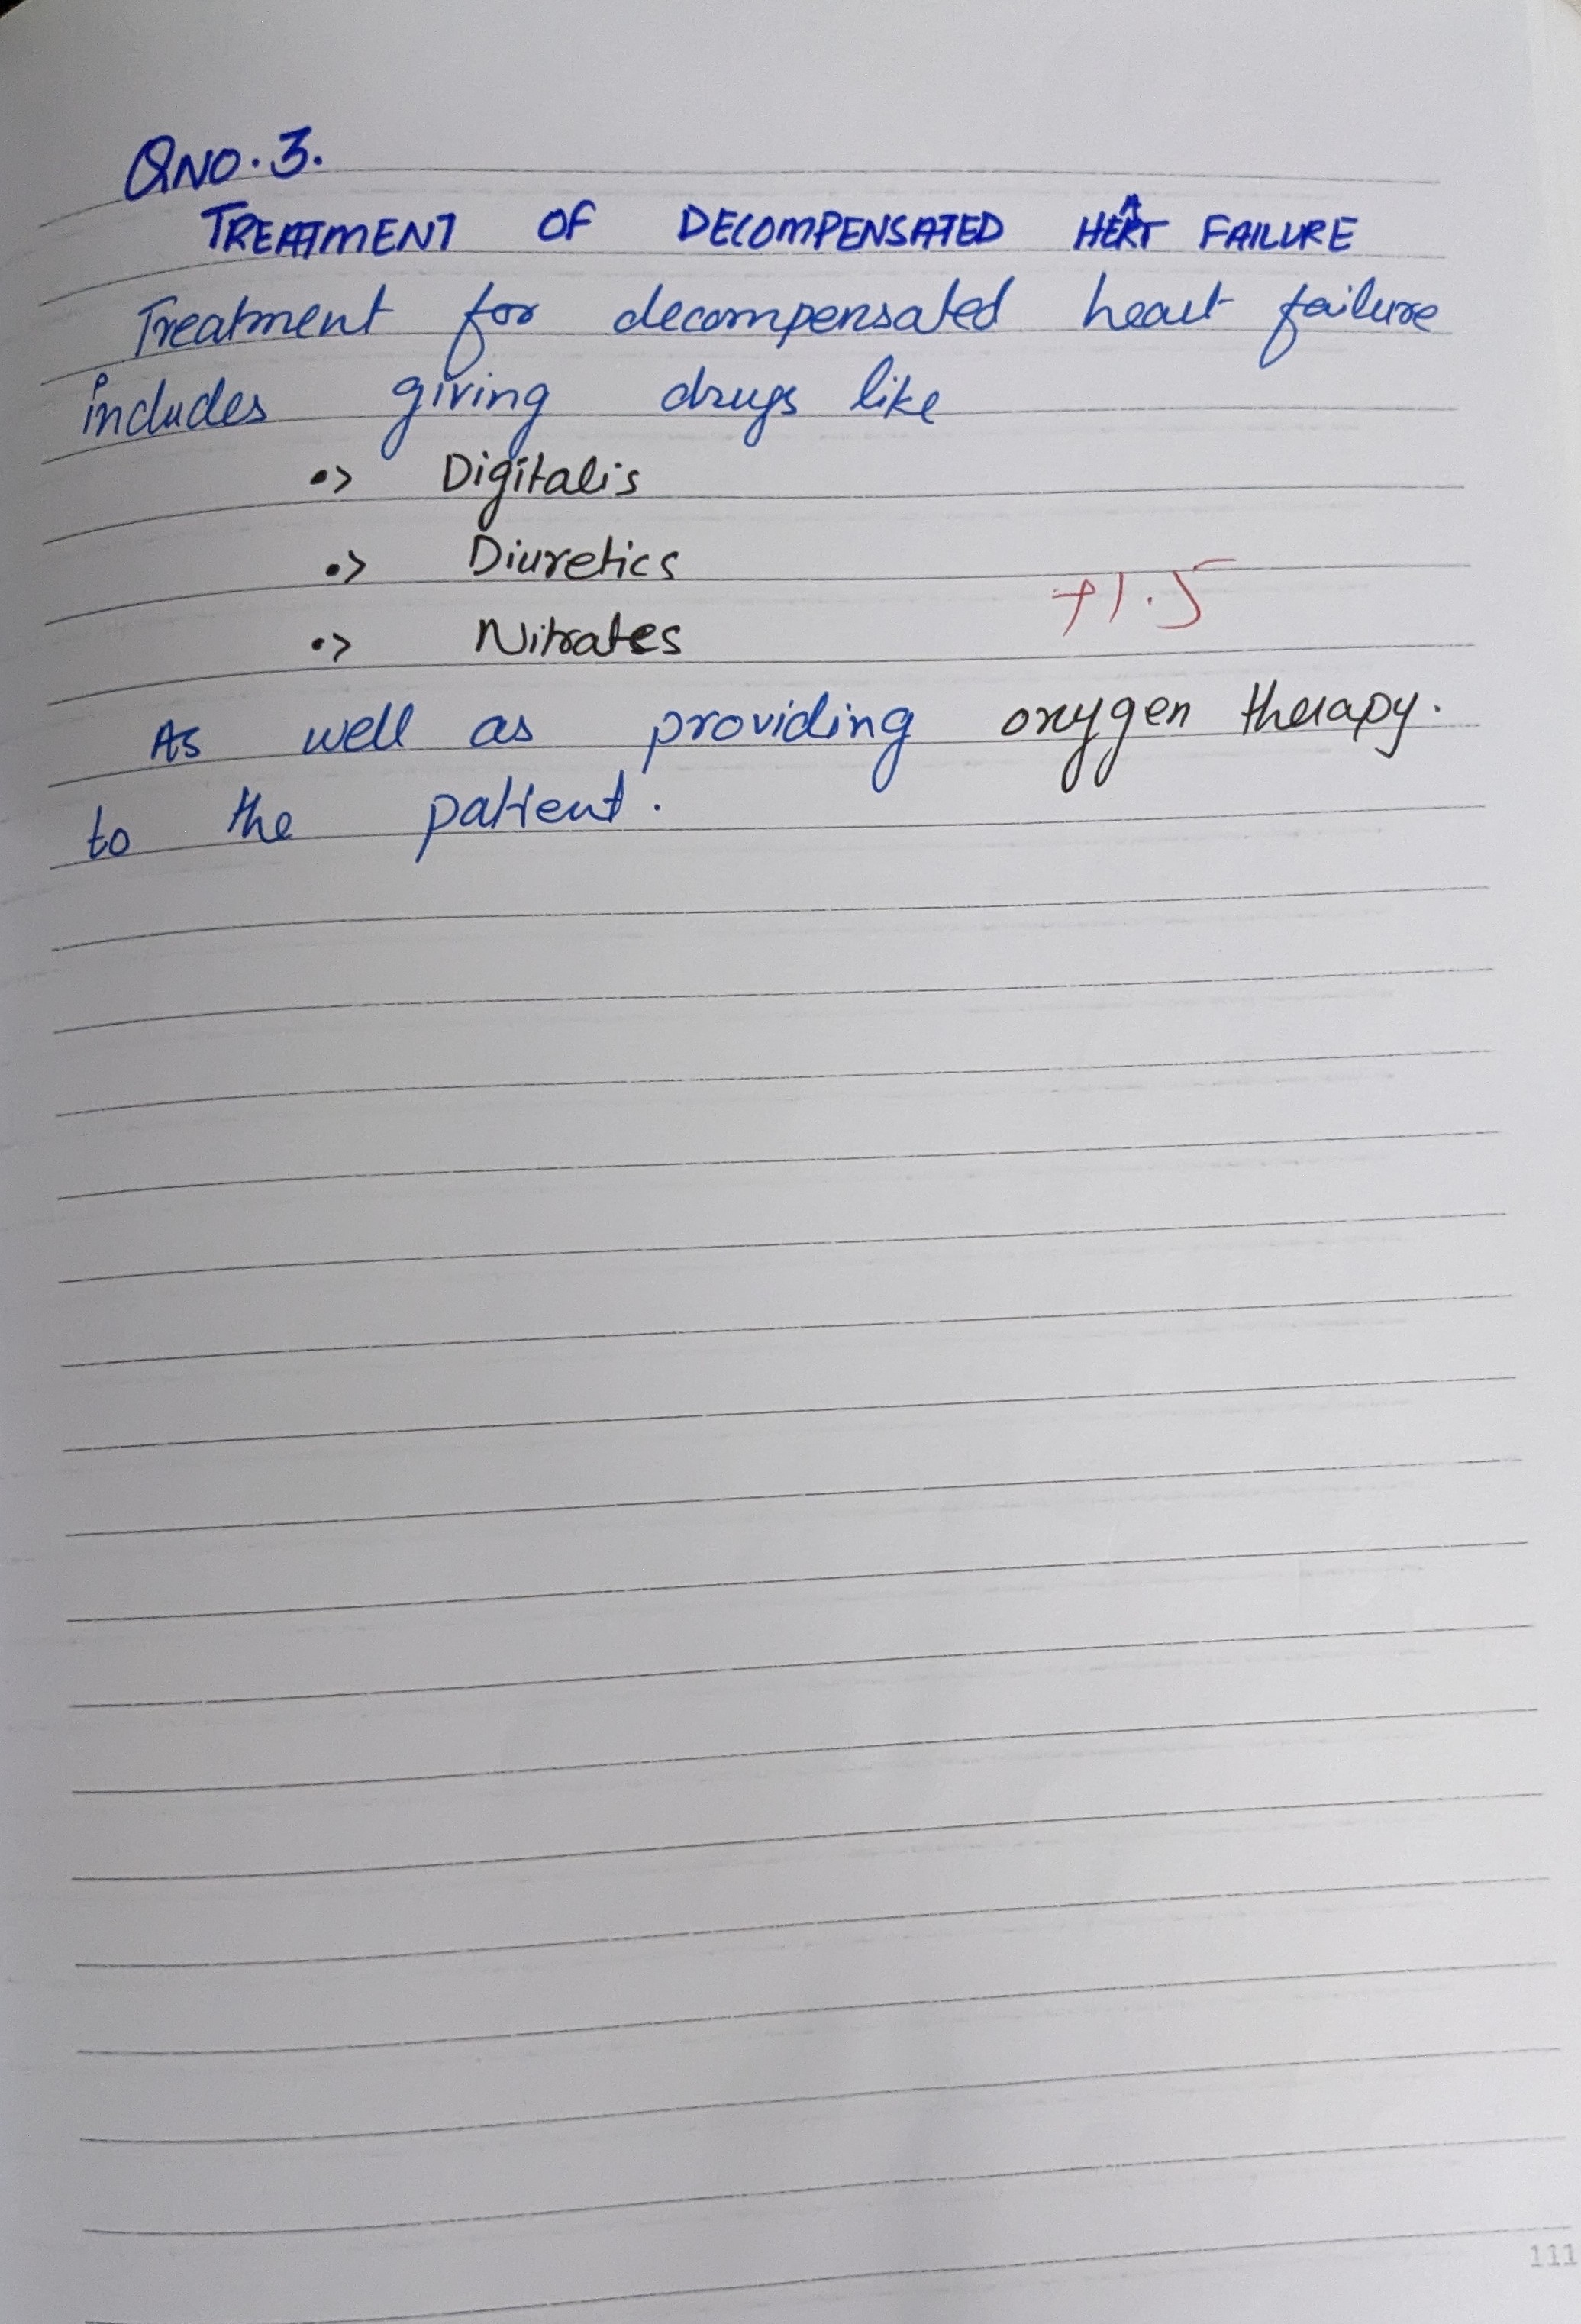 QNO.3.
TREATMENT OF DECOMPENSATED HEART FAILURE
Treatment for decompensated heart failure
includes giving drugs like
•> Digitalis
•> Diuretics
•> Nitrates
+1.5
As well as providing oxygen therapy.
to the patient.
111